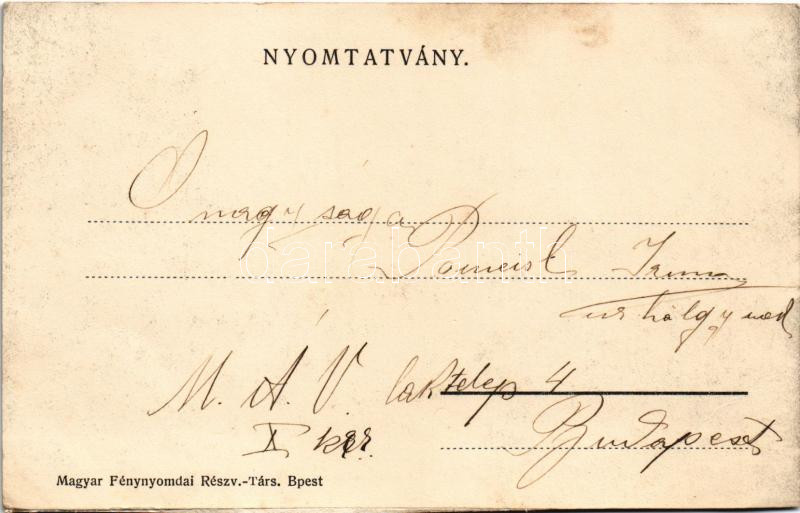 NYOMTATVÁNY.
Ő nagysága
Irma
urhölgynek
M. Á. V. laktelep 4
X ker.
Budapest
Magyar Fénynyomdai Részv.-Társ. Bpest
darabanth